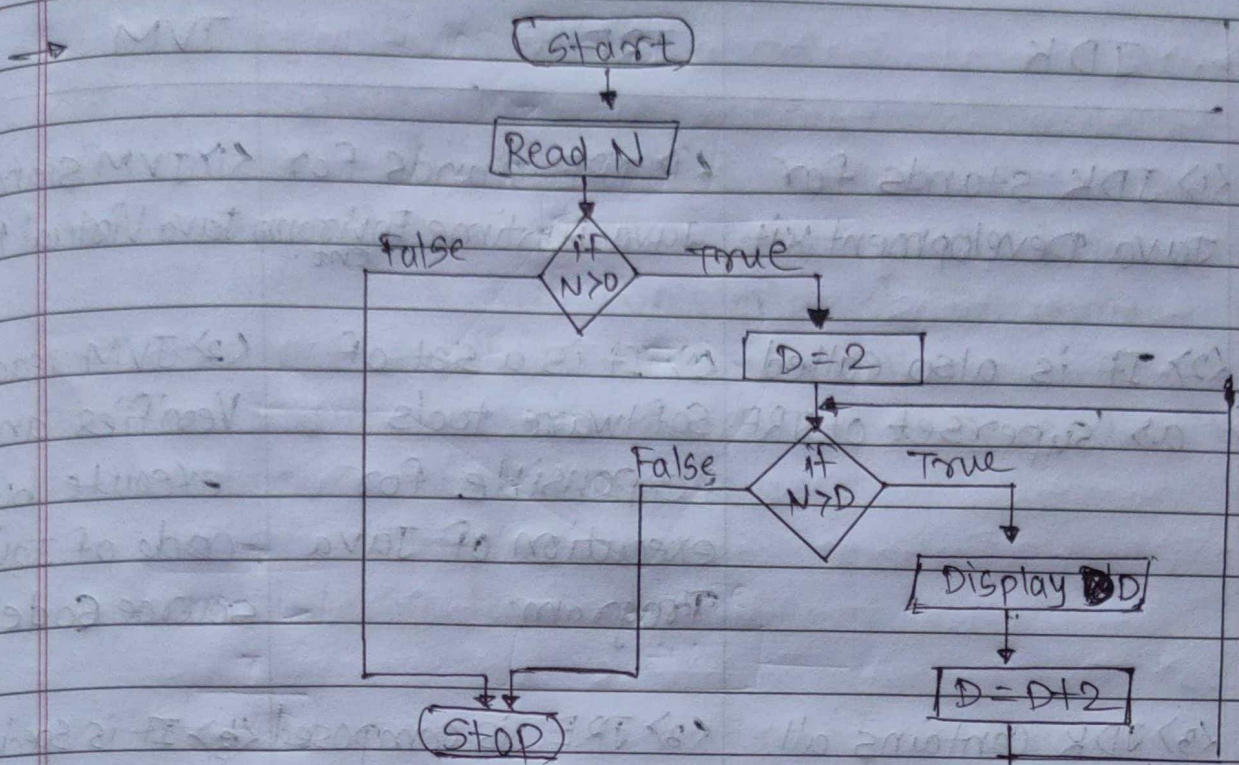 Start
Read N
if
N>0
False
True
D=2
if
N>D
False
True
Display D
D=D+2
Stop